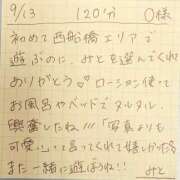 9/13 120分 O様
初めて西船橋エリアで
遊ぶのに、みとを選んでくれ
ありがとう♡ローション使って
お風呂やベッドでヌルヌル
興奮したね!!!「写真よりも
可愛い」って言ってくれて嬉しかった
また一緒に遊ぼうね!!
みと